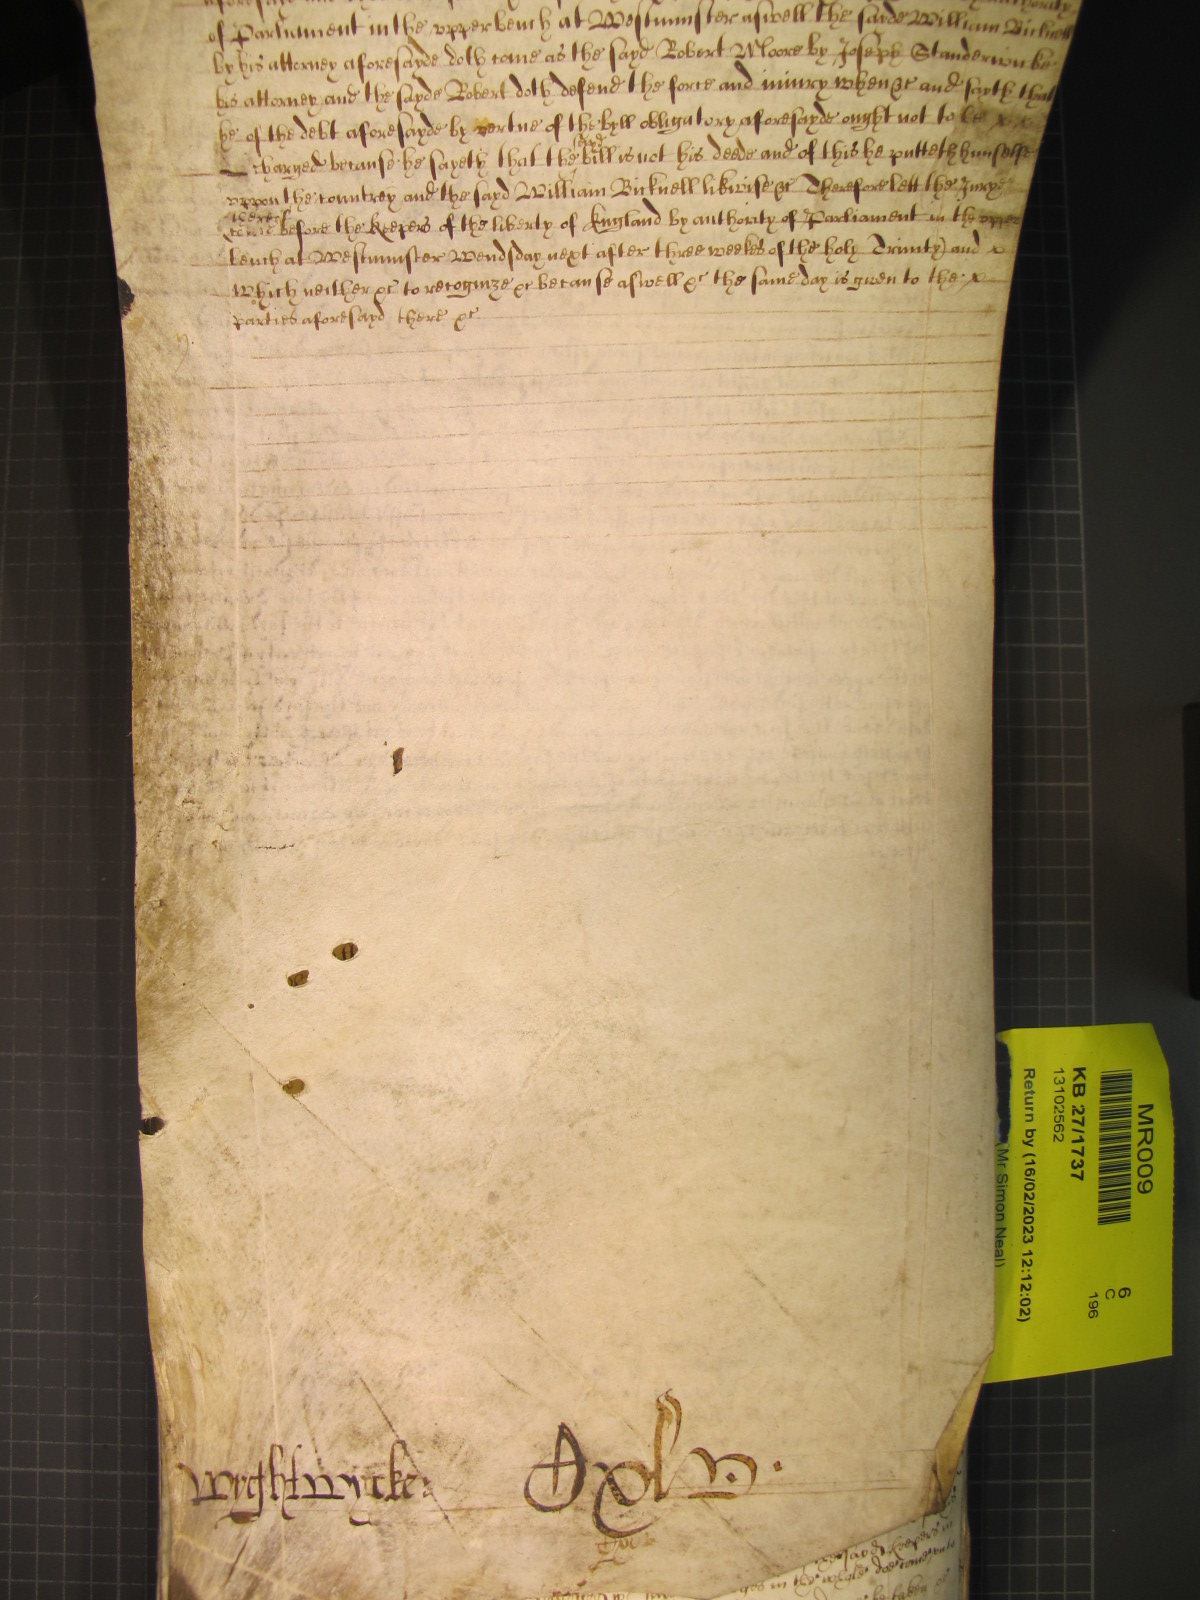 of Parliament in the upper bench at Westminster aswell the sayde William Bicknell
by his attorney aforesayde doth come as the sayd Robert Moore by Joseph Standerwicke
his attorney and the sayde Robert doth defend the force and iniury when &c and sayth that
he of the debt aforesayde by vertue of the byll obligatory aforesayde ought not to be x x
charged because he sayeth that the sayd bill is not his deede and of this he putteth himselfe
uppon the countrey and the sayd William Bicknell likwise &c Therefore lett the Jurye
before the keepers of the liberty of England by authority of Parliament in the upper
bench at Westminster Wendsday next after three weekes of the holy Trinity and x
which neither &c to recognize &c because aswell &c the same day is given to the x
parties aforesayd there &c
Wyghtwycke
MR009
KB 27/1737
13102562
Return by (16/02/2023 12:12:02)
(Mr Simon Neal)
6
C
196